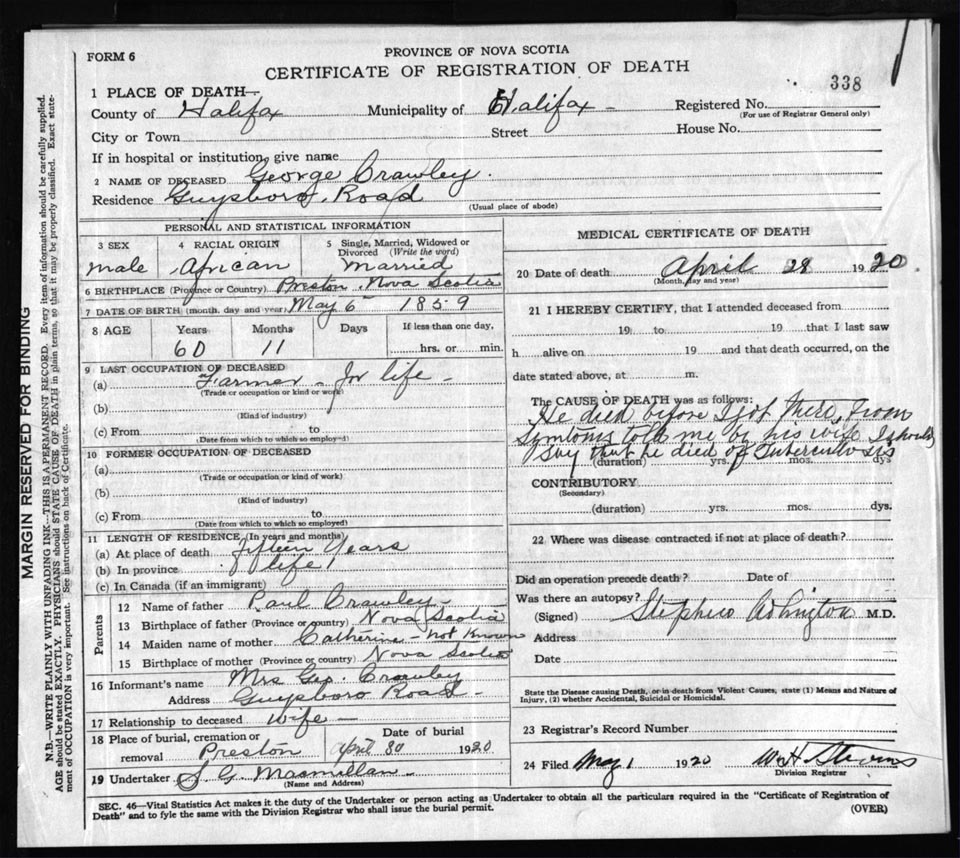 FORM 6
PROVINCE OF NOVA SCOTIA
CERTIFICATE OF REGISTRATION OF DEATH
338
1 PLACE OF DEATH—
County of Halifax Municipality of Halifax Registered No.
(For use of Registrar General only)
City or Town Street House No.
If in hospital or institution, give name
2 NAME OF DECEASED George Crawley
Residence Guysboro Road
(Usual place of abode)
PERSONAL AND STATISTICAL INFORMATION
3 SEX 4 RACIAL ORIGIN 5 Single, Married, Widowed or Divorced (Write the word)
male African Married
6 BIRTHPLACE (Province or Country) Preston, Nova Scotia
7 DATE OF BIRTH (month, day and year) May 6 1859
8 AGE Years Months Days If less than one day,
60 11 hrs. or min.
9 LAST OCCUPATION OF DECEASED
(a) Farmer - for life -
(Trade or occupation or kind or work)
(b)
(Kind of industry)
(c) From to
(Date from which to which so employed)
10 FORMER OCCUPATION OF DECEASED
(a)
(Trade or occupation or kind of work)
(b)
(Kind of industry)
(c) From to
(Date from which to which so employed)
11 LENGTH OF RESIDENCE (In years and months)
(a) At place of death Fifteen Years
(b) In province life
(c) In Canada (if an immigrant)
Parents
12 Name of father Paul Crawley
13 Birthplace of father (Province or country) Nova Scotia
14 Maiden name of mother Catherine - not Known
15 Birthplace of mother (Province or country) Nova Scotia
16 Informant's name Mrs Geo. Crawley
Address Guysboro Road
17 Relationship to deceased Wife -
18 Place of burial, cremation or removal Preston Date of burial April 30 1920
19 Undertaker J G Macmillan
(Name and Address)
MEDICAL CERTIFICATE OF DEATH
20 Date of death April 28 1920
(Month, day and year)
21 I HEREBY CERTIFY, that I attended deceased from
19 to 19 that I last saw
h alive on 19 and that death occurred, on the
date stated above, at m.
The CAUSE OF DEATH was as follows:
He died before I got there, from
symtoms told me by his wife I should
say that he died of Tuberculosis
(duration) yrs. mos. dys
CONTRIBUTORY
(Secondary)
(duration) yrs. mos. dys.
22 Where was disease contracted if not at place of death?
Did an operation precede death? Date of
Was there an autopsy?
(Signed) M.D.
Address
Date
State the Disease causing Death, or in death from Violent Causes, state (1) Means and Nature of
Injury, (2) whether Accidental, Suicidal or Homicidal.
23 Registrar's Record Number
24 Filed May 1 1920 W H Stevens
Division Registrar
SEC. 46—Vital Statistics Act makes it the duty of the Undertaker or person acting as Undertaker to obtain all the particulars required in the "Certificate of Registration of
Death" and to fyle the same with the Division Registrar who shall issue the burial permit. (OVER)
MARGIN RESERVED FOR BINDING
N.B.—WRITE PLAINLY WITH UNFADING INK—THIS IS A PERMANENT RECORD. Every item of information should be carefully supplied.
AGE should be stated EXACTLY. PHYSICIANS should STATE CAUSE OF DEATH in plain terms, so that it may be properly classified. Exact statement of OCCUPATION is very important. See instructions on back of Certificate.